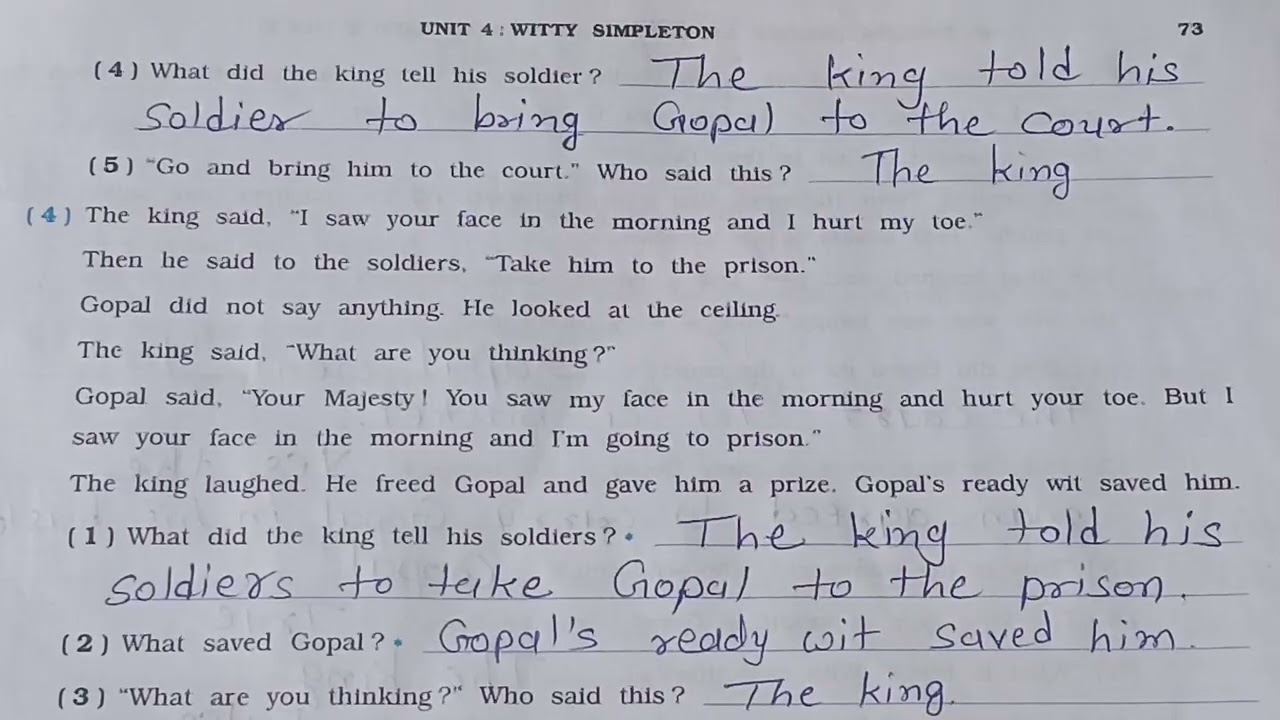 UNIT 4 : WITTY SIMPLETON 73
(4) What did the king tell his soldier? The king told his
soldier to bring Gopal to the court.
(5) "Go and bring him to the court." Who said this? The king
(4) The king said, "I saw your face in the morning and I hurt my toe."
Then he said to the soldiers, "Take him to the prison."
Gopal did not say anything. He looked at the ceiling.
The king said, "What are you thinking?"
Gopal said, "Your Majesty! You saw my face in the morning and hurt your toe. But I
saw your face in the morning and I'm going to prison."
The king laughed. He freed Gopal and gave him a prize. Gopal's ready wit saved him.
(1) What did the king tell his soldiers? The king told his
soldiers to take Gopal to the prison.
(2) What saved Gopal? Gopal's ready wit saved him.
(3) "What are you thinking?" Who said this? The king.